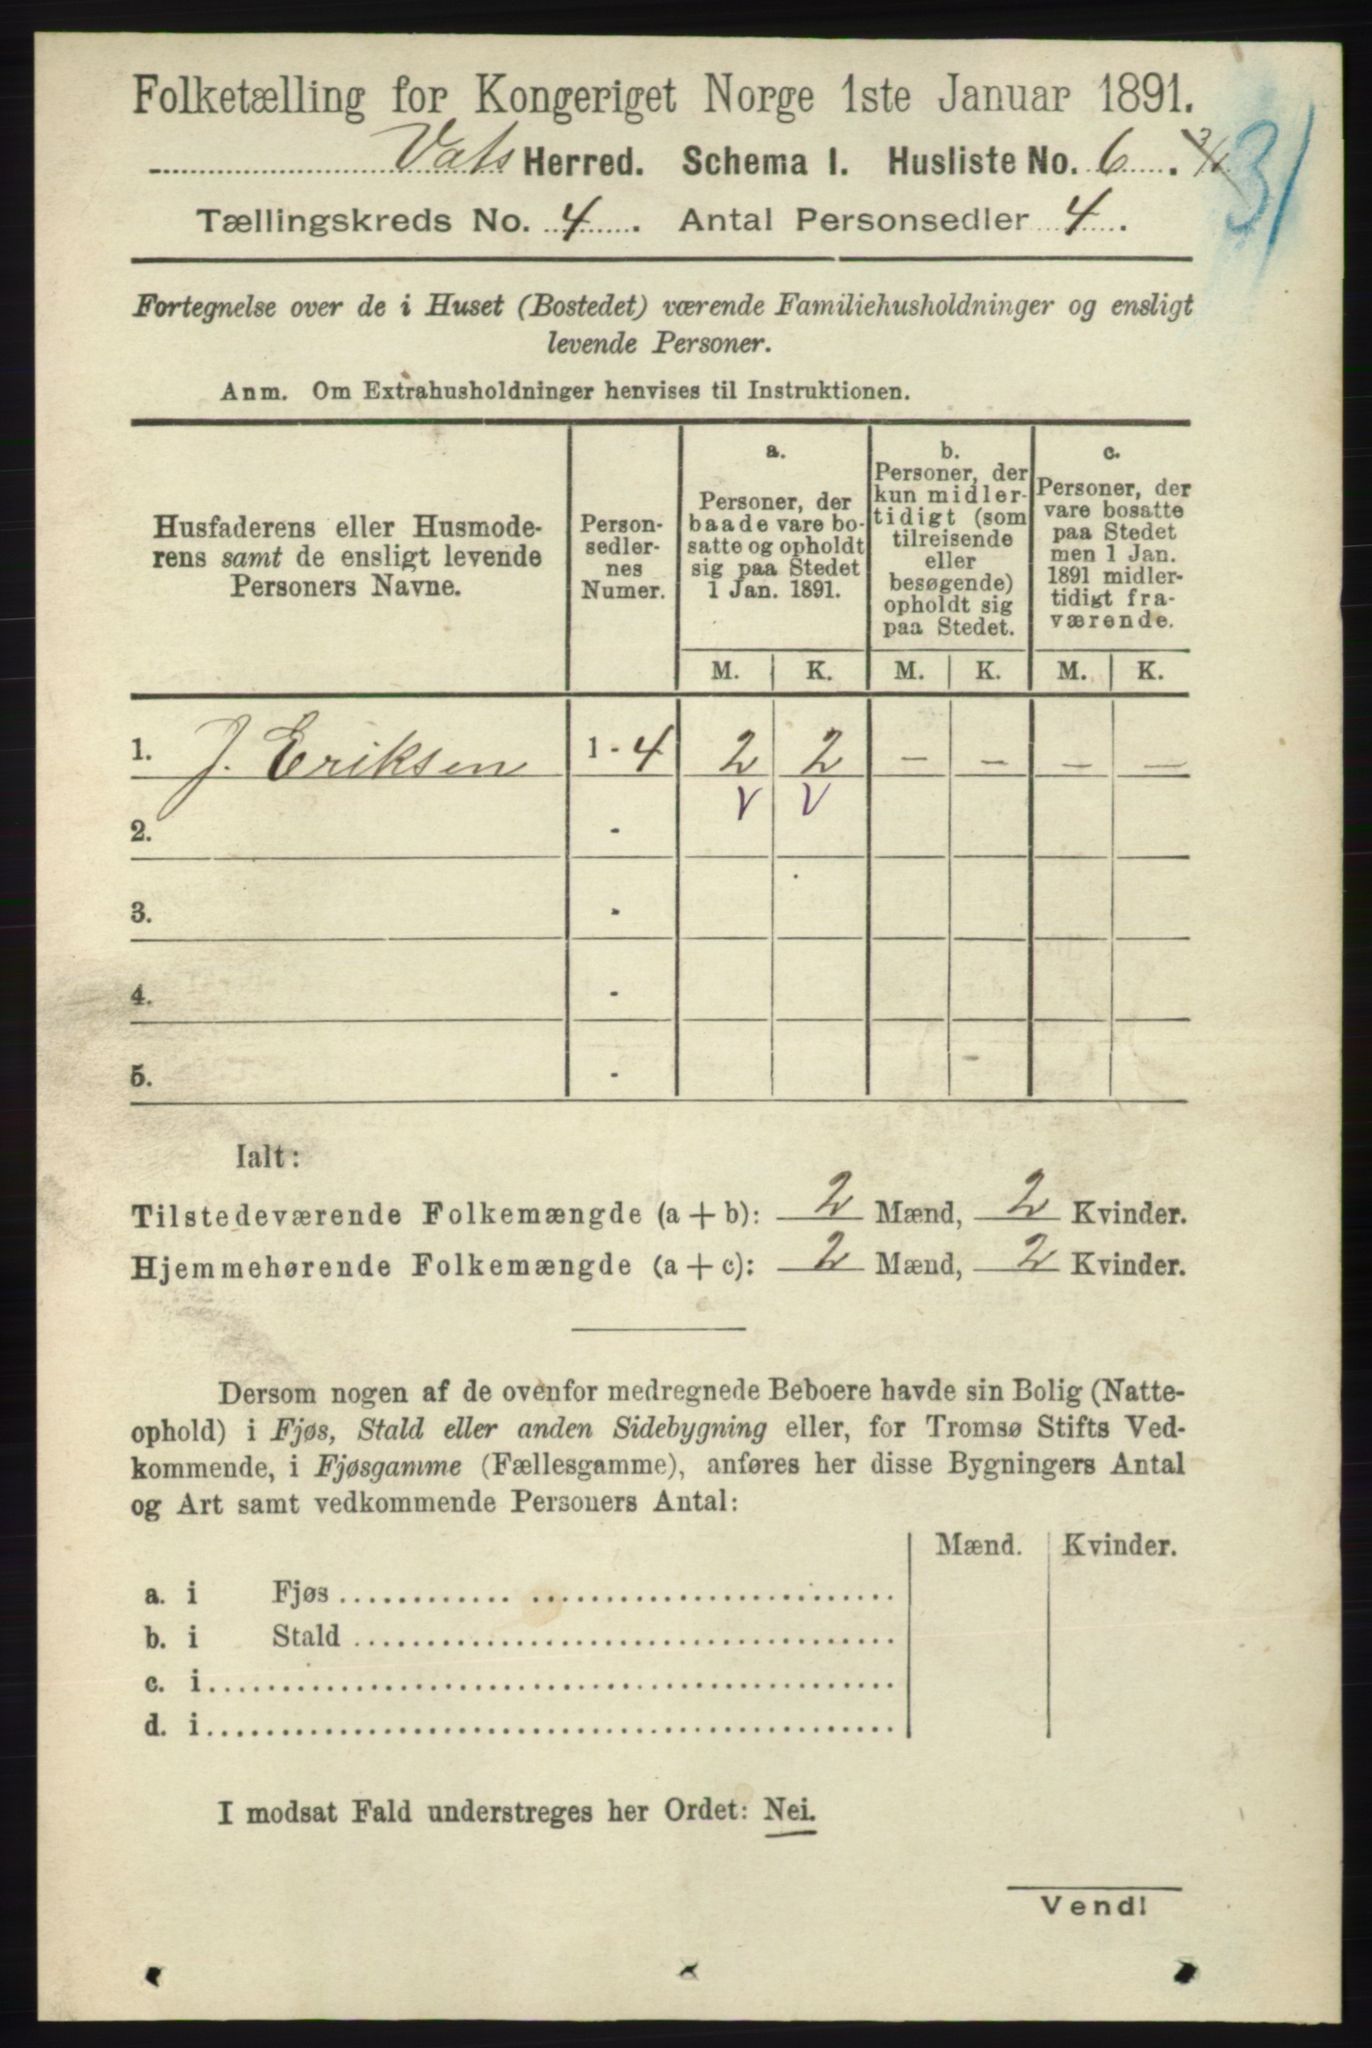 Folketælling for Kongeriget Norge 1ste Januar 1891.
Vats Herred. Schema I. Husliste No. 6.
31
Tællingskreds No. 4. Antal Personsedler 4.
Fortegnelse over de i Huset (Bostedet) værende Familiehusholdninger og ensligt
levende Personer.
Anm. Om Extrahusholdninger henvises til Instruktionen.
Husfaderens eller Husmode-
rens samt de ensligt levende
Personers Navne.
Person-
sedler-
nes
Numer.
a.
Personer, der
baade vare bo-
satte og opholdt
sig paa Stedet
1 Jan. 1891.
b.
Personer, der
kun midler-
tidigt (som
tilreisende
eller
besøgende)
opholdt sig
paa Stedet.
c.
Personer, der
vare bosatte
paa Stedet
men 1 Jan.
1891 midler-
tidigt fra-
værende.
M. K. M. K. M. K.
1. J. Eriksen 1 - 4 2 2 - - - -
V V
2. -
3. -
4. -
5. -
Ialt:
Tilstedeværende Folkemængde (a + b): 2 Mænd, 2 Kvinder.
Hjemmehørende Folkemængde (a + c): 2 Mænd, 2 Kvinder.
Dersom nogen af de ovenfor medregnede Beboere havde sin Bolig (Natte-
ophold) i Fjøs, Stald eller anden Sidebygning eller, for Tromsø Stifts Ved-
kommende, i Fjøsgamme (Fællesgamme), anføres her disse Bygningers Antal
og Art samt vedkommende Personers Antal:
Mænd. Kvinder.
a. i Fjøs
b. i Stald
c. i
d. i
I modsat Fald understreges her Ordet: Nei.
Vend!